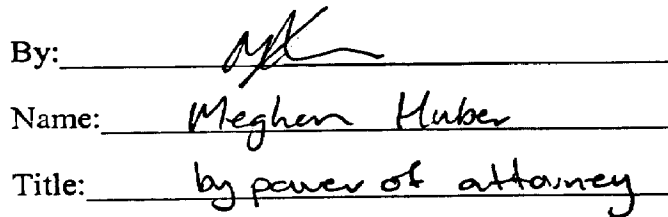 By:
Name: Meghan Huber
Title: by power of attorney